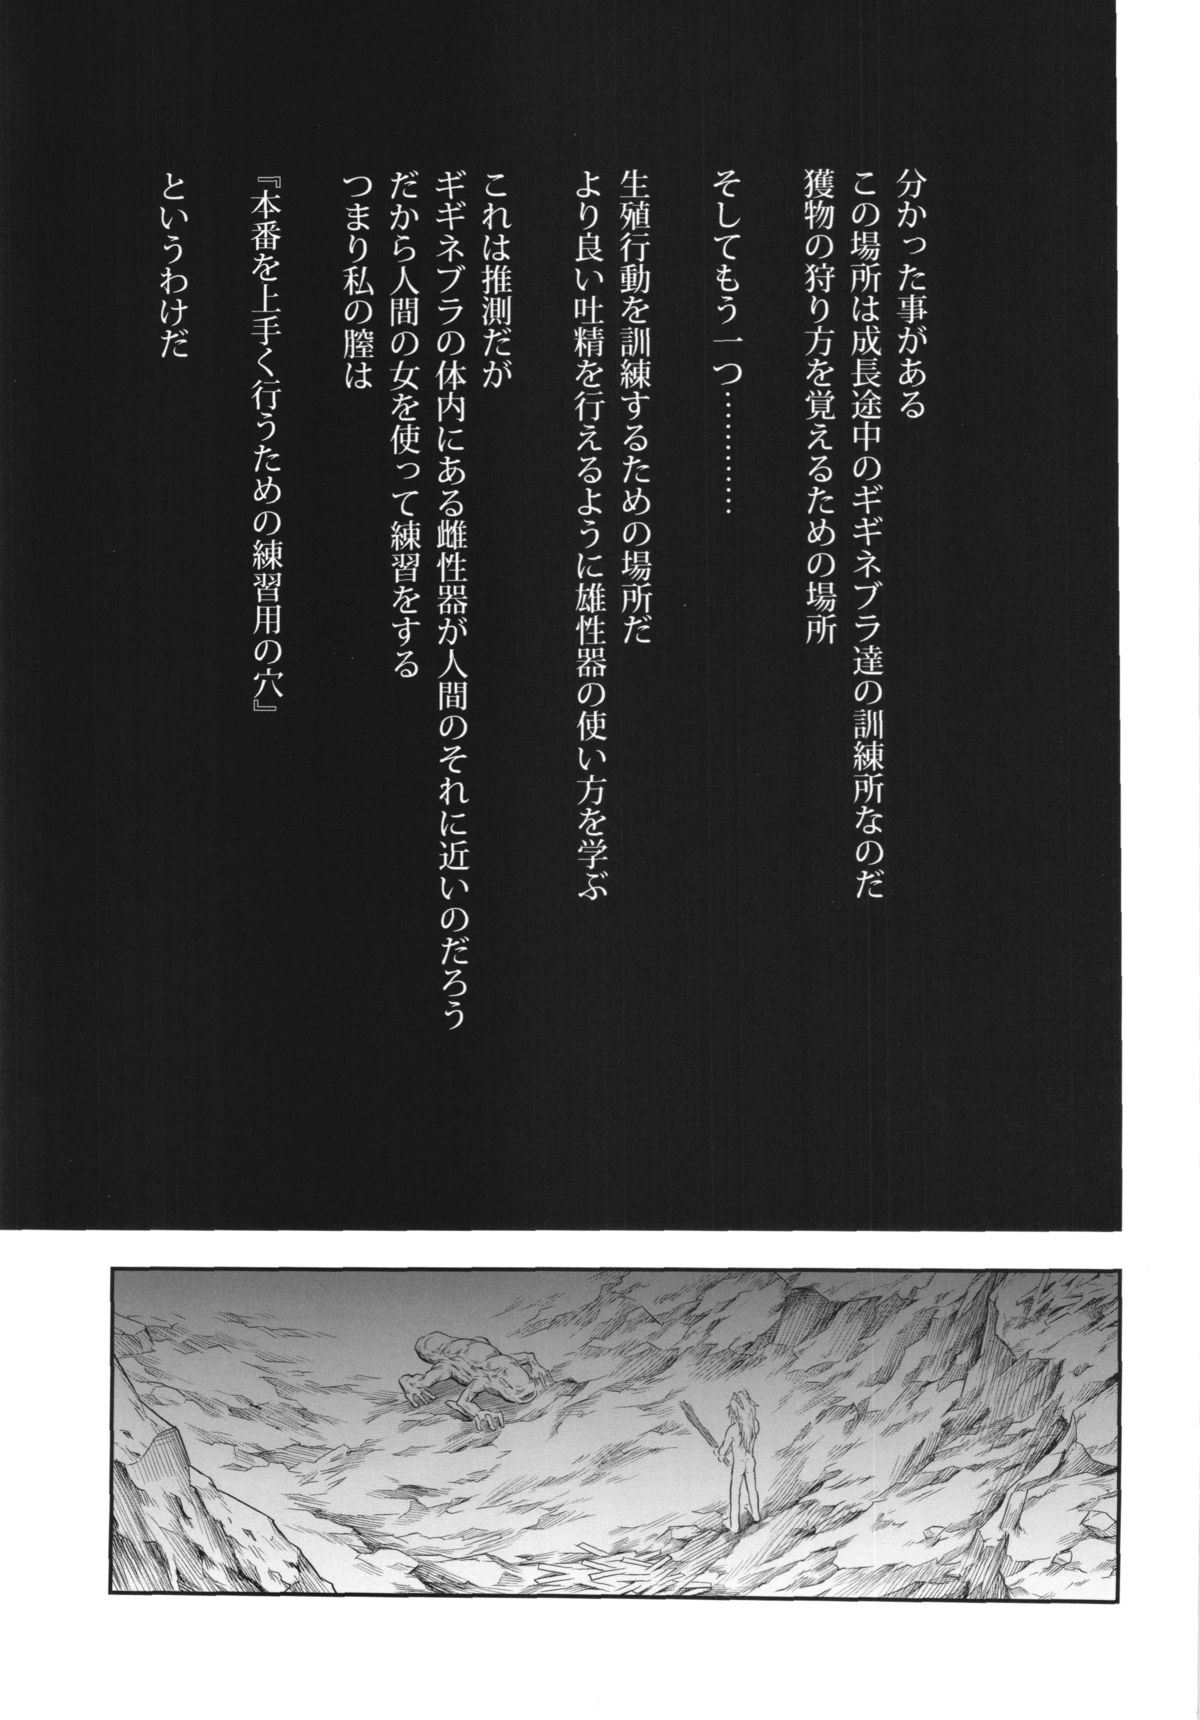 分かった事がある
この場所は成長途中のギギネブラ達の訓練所なのだ
獲物の狩り方を覚えるための場所
そしてもう一つ…………
生殖行動を訓練するための場所だ
より良い吐精を行えるように雄性器の使い方を学ぶ
これは推測だが
ギギネブラの体内にある雌性器が人間のそれに近いのだろう
だから人間の女を使って練習をする
つまり私の膣は
『本番を上手く行うための練習用の穴』
というわけだ